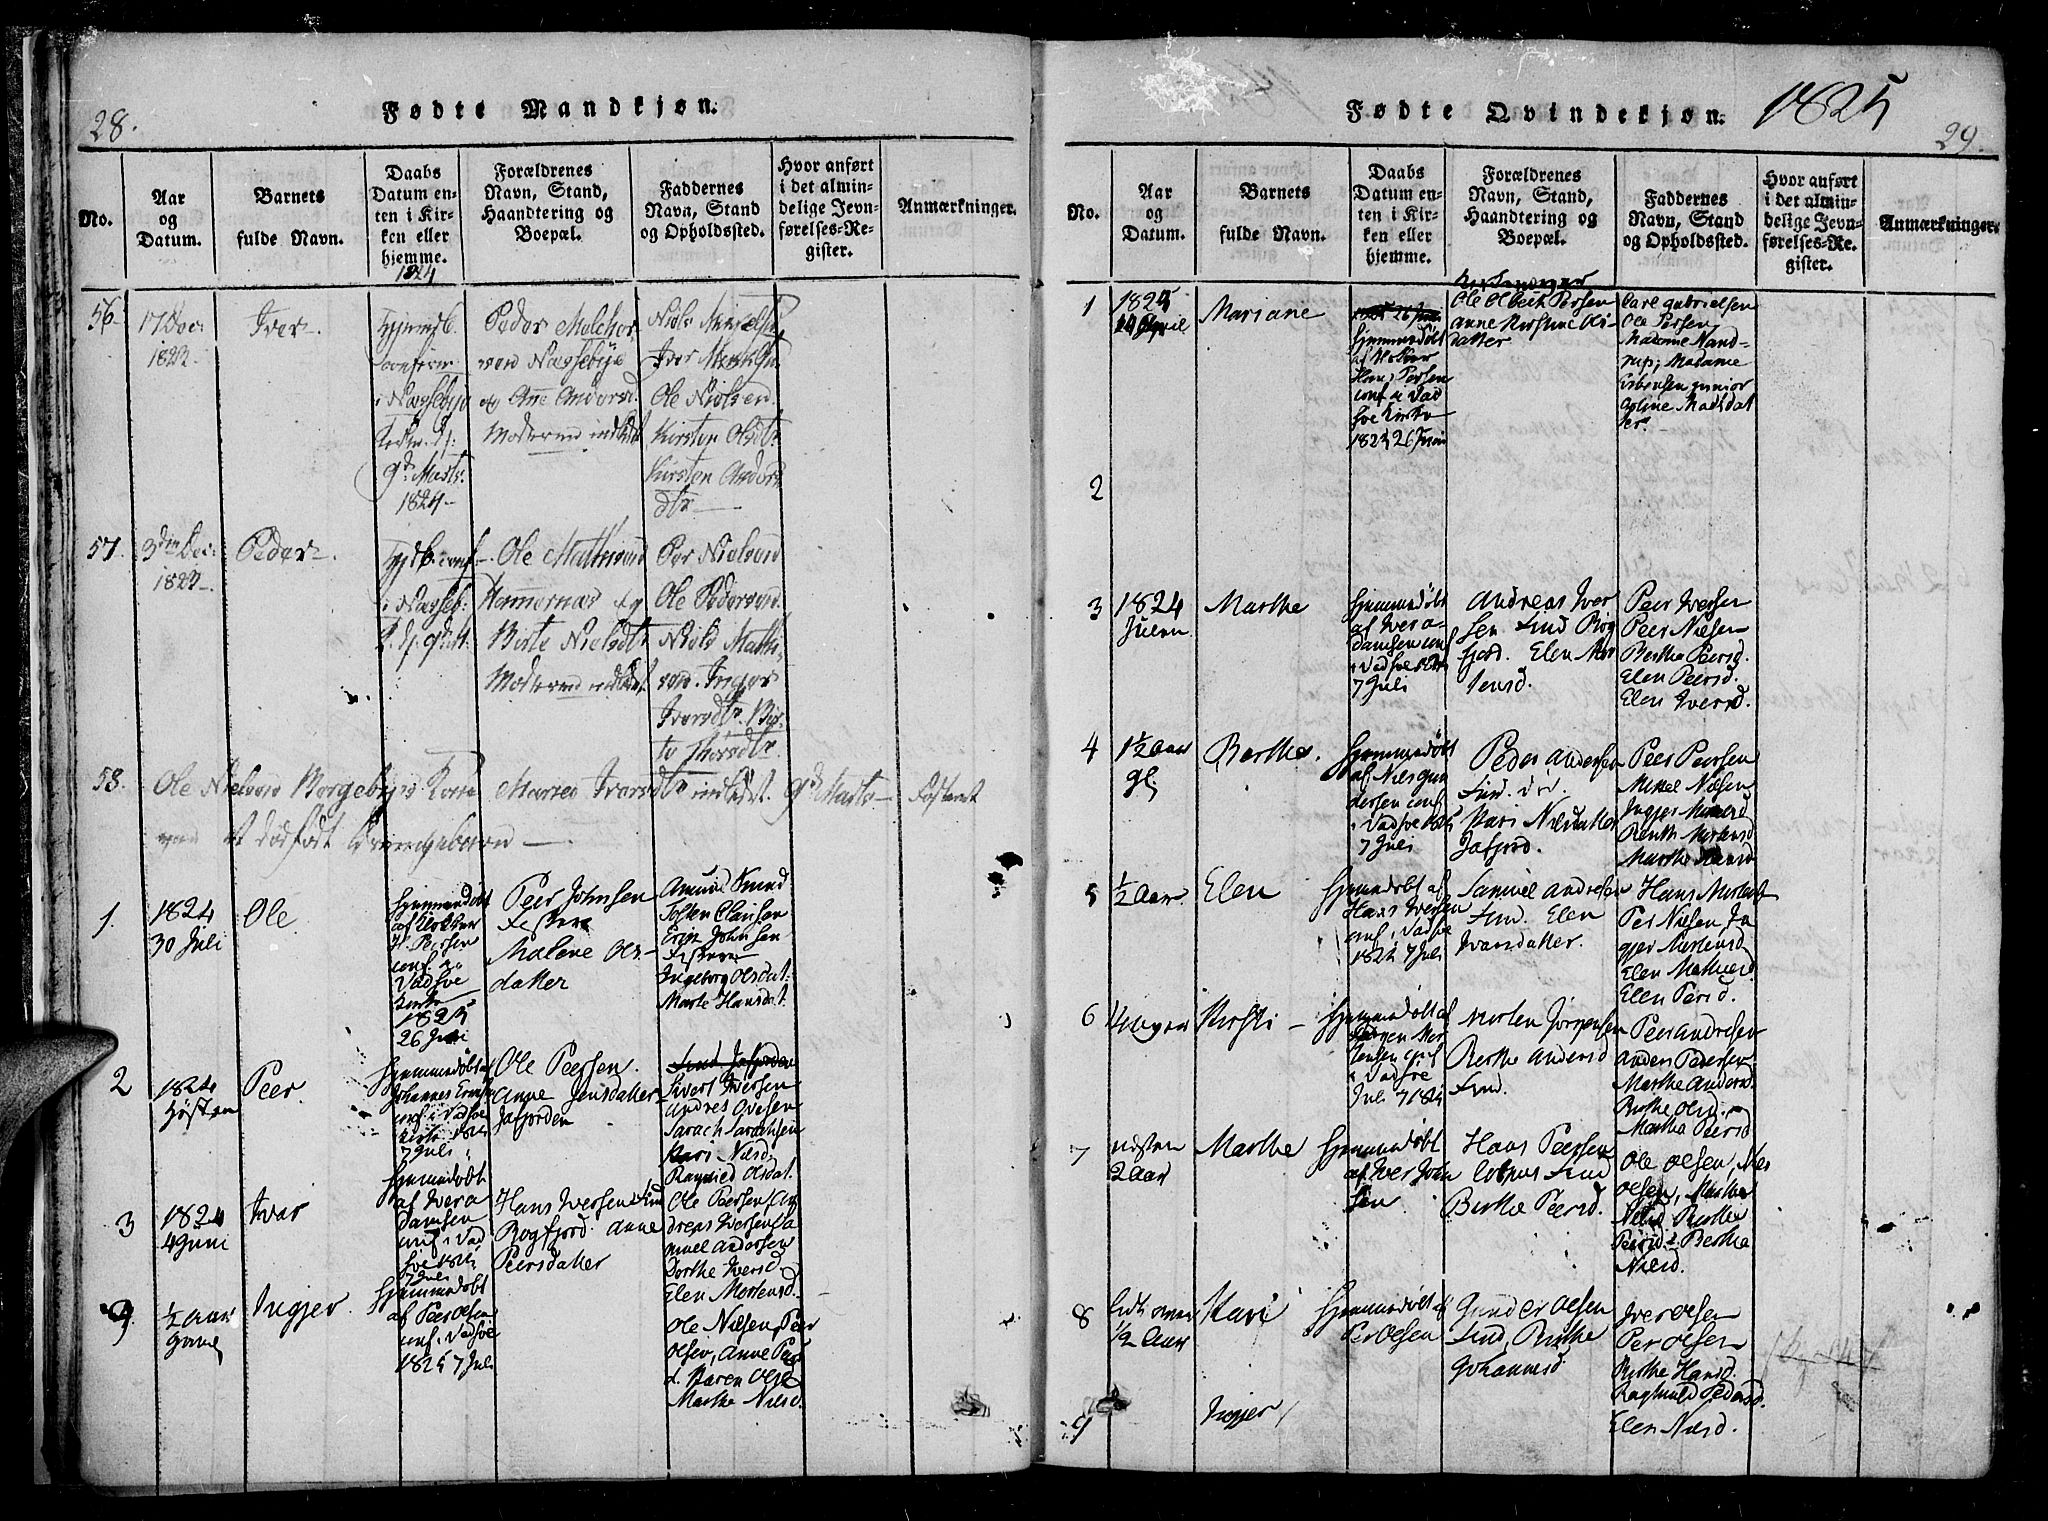 28.
Fødte Mandkjøn.
No.
Aar
og
Datum.
Barnets
fulde Navn.
Daabs
Datum en-
ten i Kir-
ken eller
hjemme.
1824
Forældrenes
Navn, Stand,
Haandtering og
Boepæl.
Faddernes
Navn, Stand
og Opholdssted.
Hvor anført
i det almin-
delige Jevn-
førelses-Re-
gister.
Anmærkninger.
56.
17 Dec:
1823.
Iver
Hjemmb.
confirm
i Næssebye
9de Marts
1824
Peder Melcher
sen Næssebye
og Anne Anders
Moderen indledet
Ole Nielsen
Kirsten Olsdtr
Kirsten Anders
dtr
57.
3die Dec:
1823
Peder
Hjdb. conf.
i Næsseb:
Ole Mathisen
Hammernæs og
Birte Nielsdtr
Moderen indledet
Per Nielsen
Ole Pedersen
Niels Mathi-
sen. Inger
Iversdtr. Bir-
te Thorsdtr.
58.
Ole Nielsens Borgebye's Kone Maren Iversdtr indledet. 9de Marts
et dødfødt Drengebarn
1.
1824
30 Juli
Ole
Hjemmedøbt
af Klokker
H. Peersen
conf. i
Vadsøe
Kirke
1825
26 Juni
Peer Johnsen
Malene Ols-
datter
Amund
Tosten Clausen
Erik Johnsen
Ingeborg Olsdat:
Marte Hansdat.
2
1824
Høsten
Peer.
Hjemmedøbt af
Johannes
conf. i Vadsøe
Kirke 1825
7 Juli
Ole Peersen.
Anne Jensdatter
Jafjorden
Sivert Iversen
Andres Ovesen
Sarach Sarachsen
Kari Nielsd.
Ragnild Olsdat.
3
1824
4 Juni
Ivar
Hjemmedøbt
af Iver A
damsen
conf. i Vad
søe 1825
7 Juli
Hans Iversen Find
Bogfjord. Anne
Peersdatter
Ole Peersen, An
dreas Iversen Sa
muel Andersen
Dorthe Iversd.
Elen Mortensd.
4.
½ Aar
gamel
Ingjer.
Hjemmedøbt
af Peer Olsen
conf. i Vadsøe
1825 7 Juli
Ole Nielsen, Peer
Olsen, Anne Peers
d. Karen Olsd.
Marthe Nielsd.
Fødte Qvindekjøn.
1825
29.
No.
Aar
og
Datum.
Barnets
fulde Navn.
Daabs
Datum en-
ten i Kir-
ken eller
hjemme.
Forældrenes
Navn, Stand,
Haandtering og
Boepæl.
Faddernes
Navn, Stand
og Opholdssted.
Hvor anført
i det almin-
delige Jevn-
førelses-Re-
gister.
Anmærkninger.
1
1825
April
Mariane
Hjemmedøbt
af Klokker
Hans Persen
conf. i Vad
søe Kirke
1825 26 Juni
Ole Olbech Persen
Anne Kirstine Ols-
datter
Carl Gabrielsen
Ole Persen
Madame Nand-
rup, Madame
Esbensen junior
Madsdat
ter.
2
3
1824
Julen
Marthe
Hjemmedøbt
af Iver A-
damsen conf.
i Vadsøe
7 Juli
Andreas Iver
sen Find Bog
fjord. Elen Mor
tensd.
Peer Iversen
Peer Nielsen
Berthe Peersd.
Elen Peersd.
Elen Iversd.
4
1½ Aar
gl.
Berthe.
Hjemmedøbt
af Niels Gun
dersen conf.
i Vadsøe 1825
7 Juli
Peder Andersen
Find. død.
Kari Nielsdatter
Jafjord.
Peer Peersen
Mikel Nielsen
Berith Mortensd
Marthe
5
½ Aar
Elen
Hjemmedøbt af
Hans Iversen
conf. i Vadsøe
1825 7 Juli
Samuel Andresen
Find. Elen
Ivarsdatter.
Hans Mortens
Per Nielsen In
gjer Mortensd
Elen Mathiesd.
Elen Persd.
6
Kirsti
Hjemmedøbt af
Jørgen Mor
tensen conf.
i Vadsøe
Juli 7 1825
Morten Jørgensen
Berthe Andersd
Find.
Peer Andresen
Anders Pedersen
Marthe Andersd.
Berthe Olsd.
Martha Peersd
7
næsten
2 Aar
Marthe
Hjemmedøbt
af Iver John
sen
Hans Peersen
Find
Berthe Peersd.
Ole Olsen, Niels
Olsen, Marthe
Nielsd. Berthe
Peersd. Berthe
Nielsd.
8
lidt over
½ Aar
Kari
Hjemmedøbt af
Per Olsen
Gunder Olsen
Find, Berthe
Johannesd.
Iver Olsen
Per Olsen
Berthe Hansd.
Ragnild Pedersd.
Elen Nielsd.
9
Ingjer